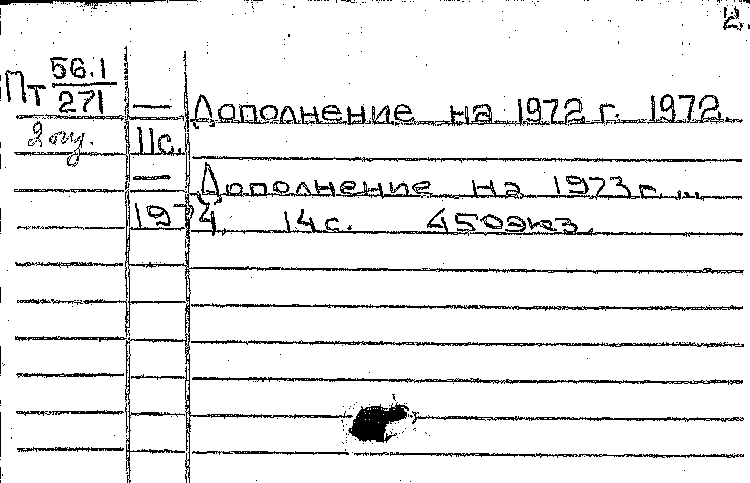 2.
Пт 56.1
271
— Дополнение на 1972 г. 1972.
11с.
— Дополнение на 1973г. ...
1974. 14с. 450экз.